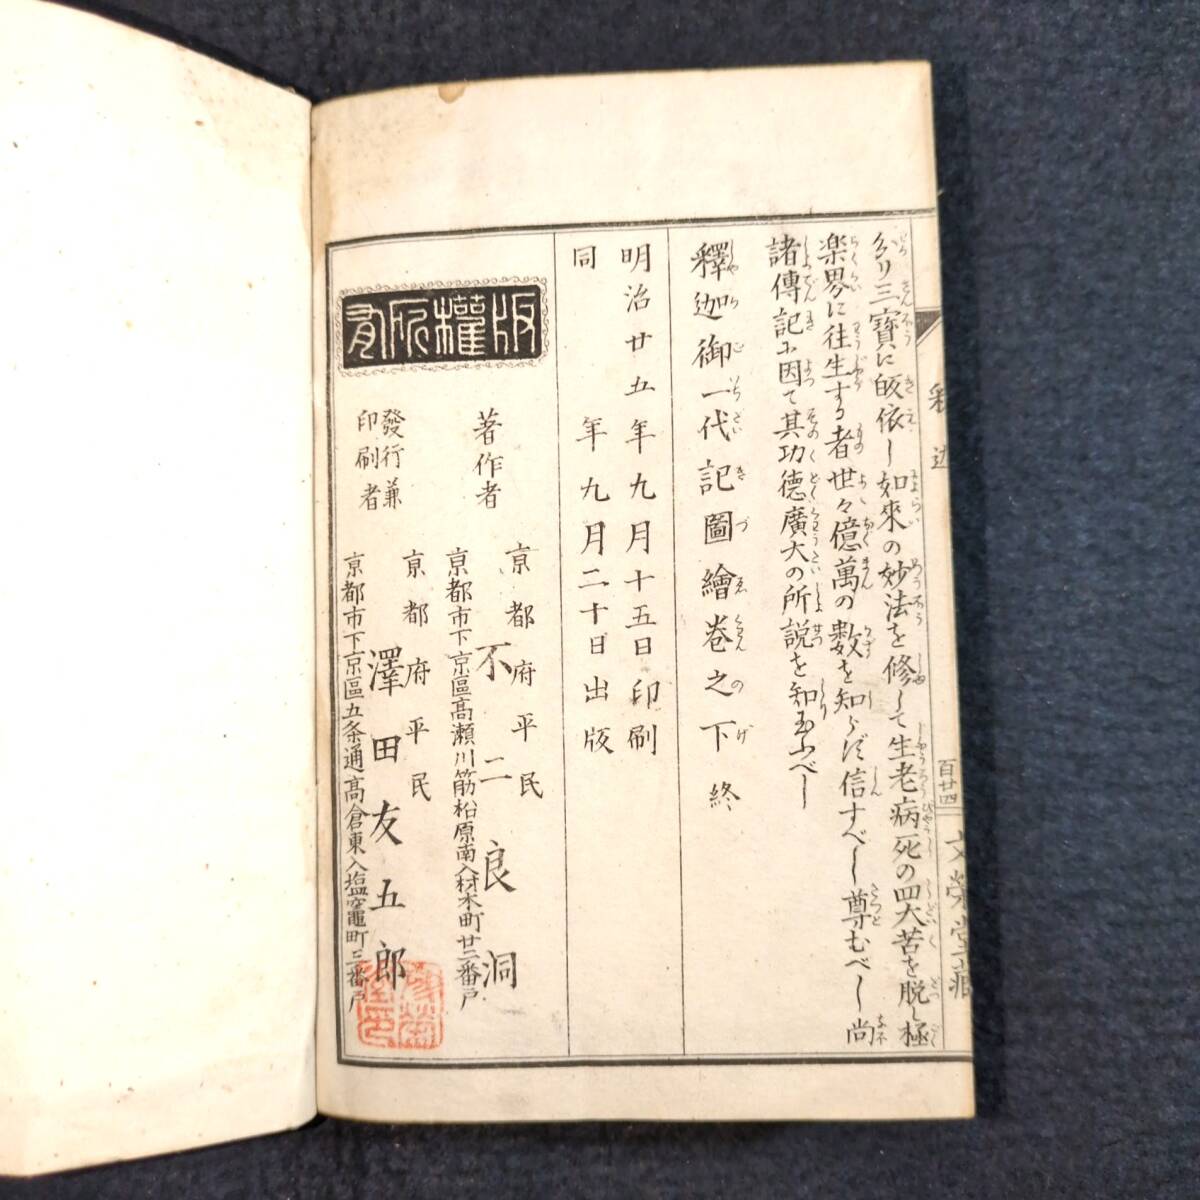 り三寶に皈依し如來の妙法を修して生老病死の四大苦を脱し極
楽界に往生する者世々億萬の数を知らず信ずべし尊むべし尚
諸傳記に因て其功德廣大の所説を知玉ふべし
釋迦御一代記圖繪卷之下終
明治廿五年九月十五日印刷
同年九月二十日出版
版權所有
著作者
京都府平民
不二良洞
京都市下京區高瀬川筋松原南入材木町廿二番戸
發行兼
印刷者
京都府平民
澤田友五郎
京都市下京區五条通高倉東入塩竈町三番戸
百廿四
文榮堂蔵